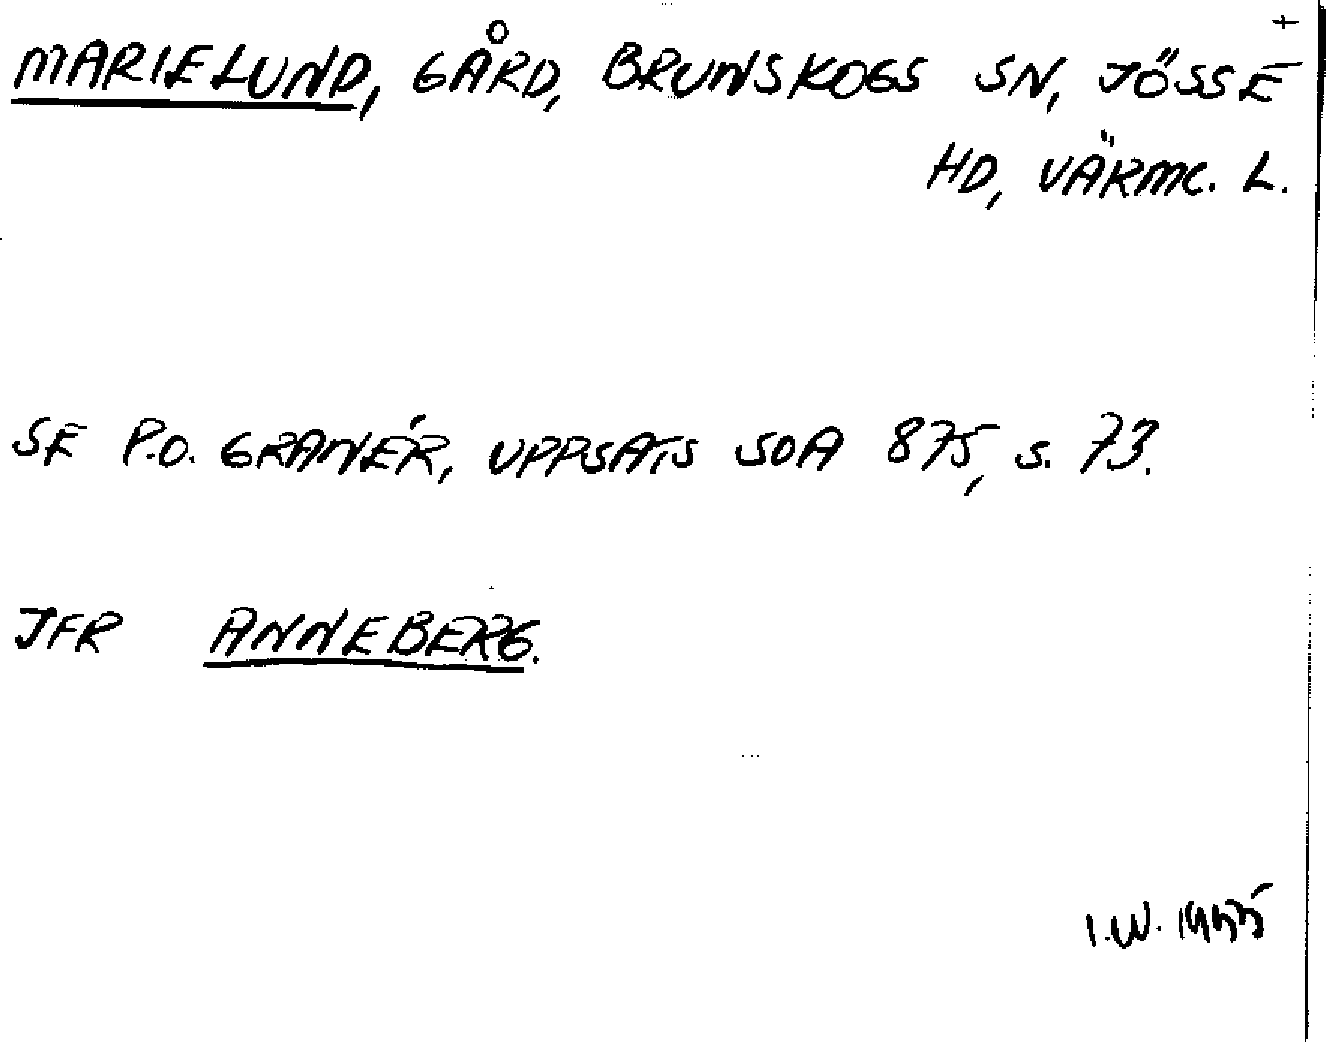 +
MARIELUND, GÅRD, BRUNSKOGS SN, JÖSSE
HD, VÄRML. L.
SE P.O. GRANÉR, UPPSATS SOA 875, s. 73.
JFR ANNEBERG.
I.W. 1955